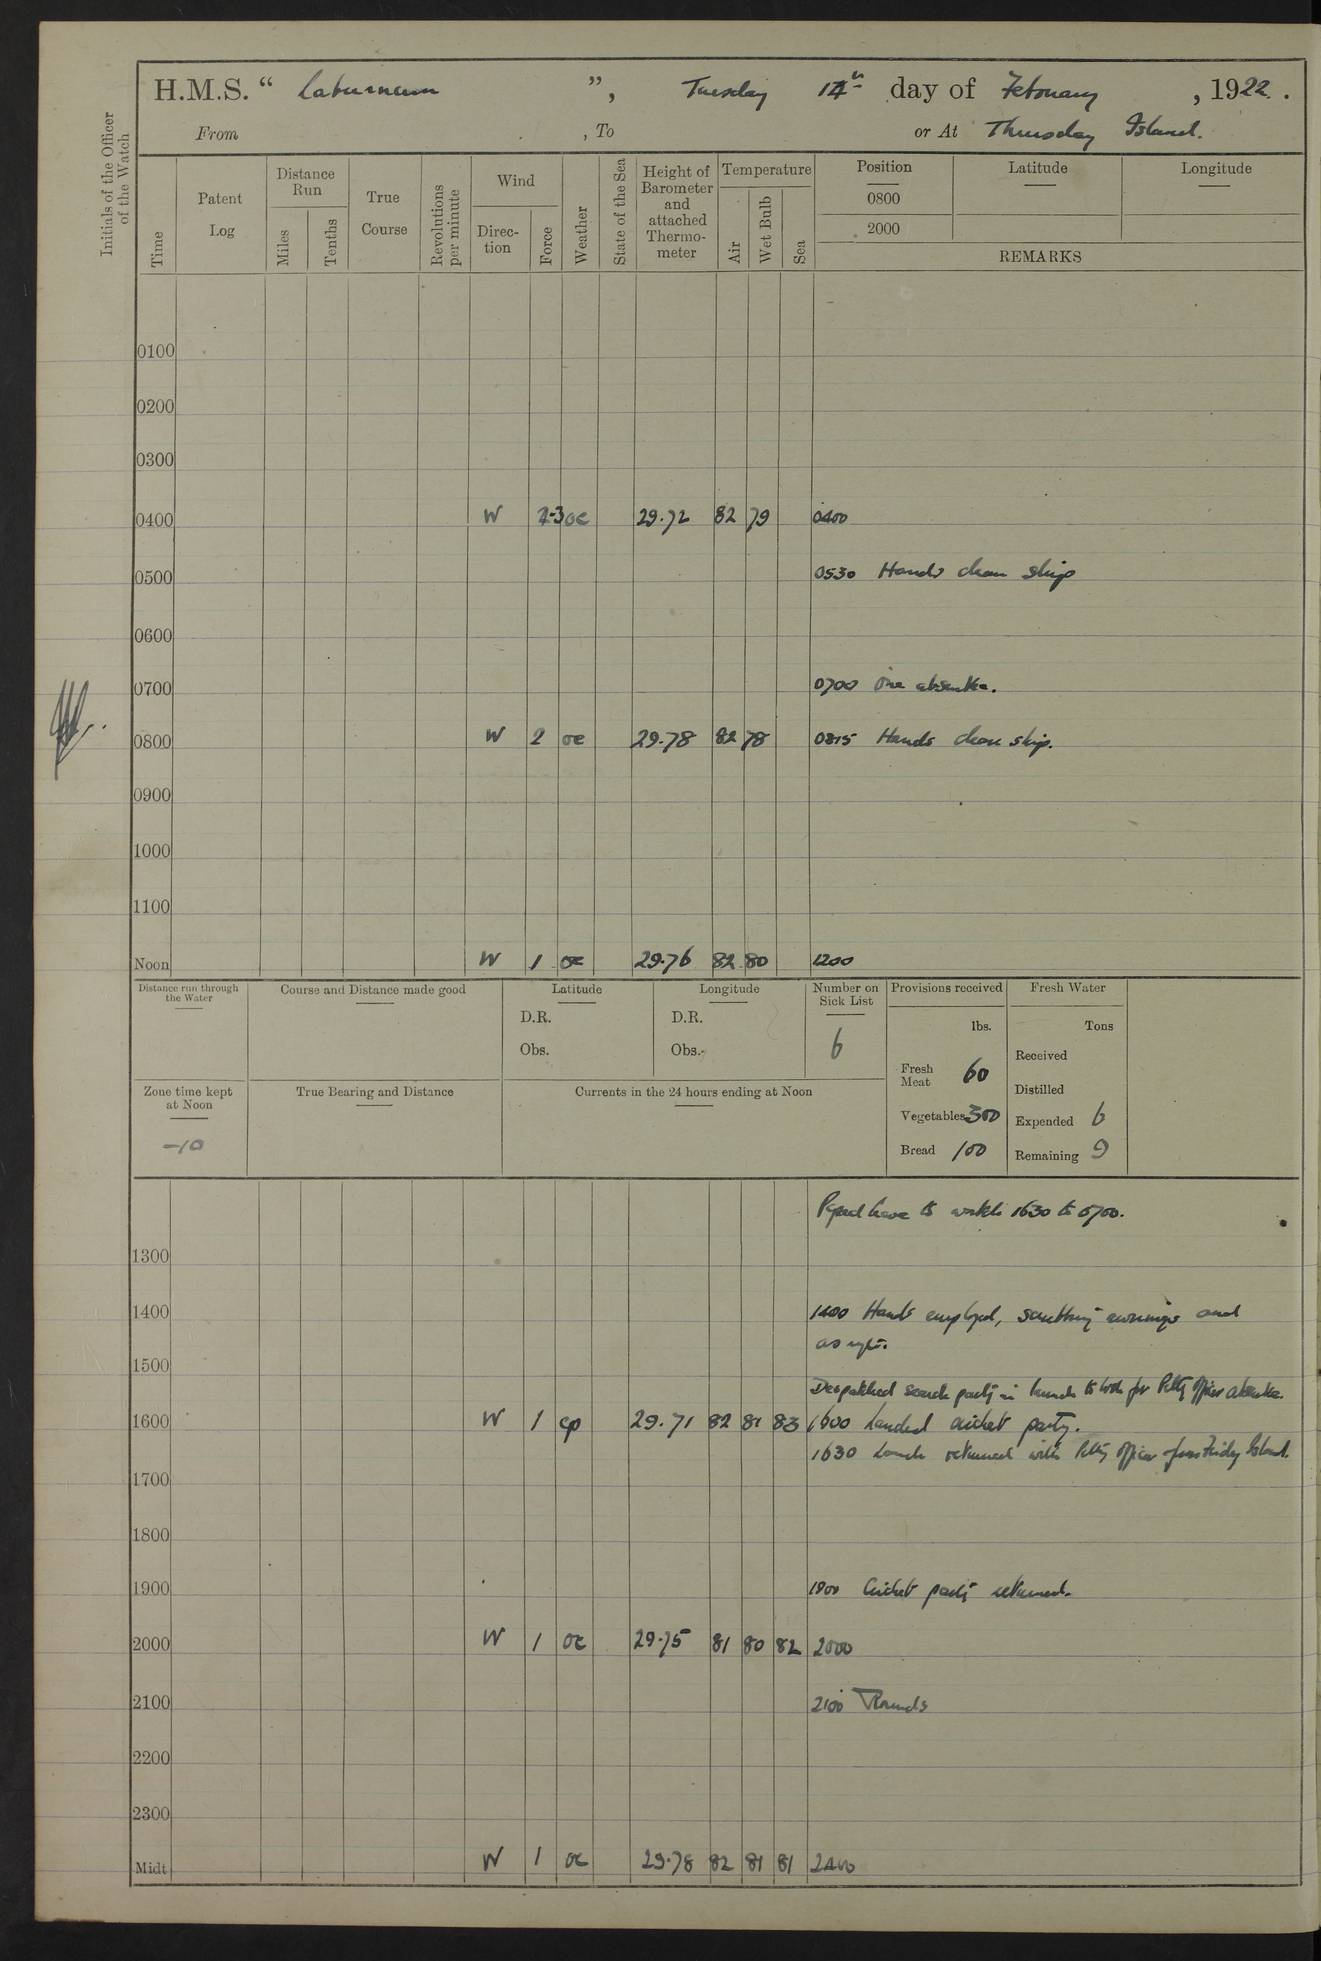 H.M.S. “ Laburnum ”, Tuesday 14th day of February, 1922.
From , To or At Thursday Island.
Initials of the Officer of the Watch
Time
Patent Log
Distance Run
Miles
Tenths
True Course
Revolutions per minute
Wind
Direction
Force
Weather
State of the Sea
Height of Barometer and attached Thermometer
Temperature
Air
Wet Bulb
Sea
Position
0800
2000
Latitude
Longitude
REMARKS
0100
0200
0300
0400 W 2-3 oc 29.72 82 79 0400
0500 0530 Hands clean ship
0600
0700 0700 One absentee.
0800 W 2 oc 29.78 82 78 0815 Hands clean ship.
0900
1000
1100
Noon W 1 oc 29.76 82 80 1200
Distance run through the Water
Course and Distance made good
Latitude
D.R.
Obs.
Longitude
D.R.
Obs.
Number on Sick List
6
Provisions received
lbs.
Fresh Meat 60
Vegetables 300
Bread 100
Fresh Water
Tons
Received
Distilled
Expended 6
Remaining 9
Zone time kept at Noon
-10
True Bearing and Distance
Currents in the 24 hours ending at Noon
Piped leave to watch 1630 to 0700.
1300
1400 1400 Hands employed, scrubbing awnings and
as reqte.
1500
Despatched search party in launch to look for Petty Officer absentee.
1600 W 1 cp 29.71 82 81 83 1600 Landed cricket party.
1630 Launch returned with Petty Officer from Friday Island.
1700
1800
1900 1900 Cricket party returned.
2000 W 1 oc 29.75 81 80 82 2000
2100 2100 Rounds
2200
2300
Midt W 1 oc 29.78 82 81 81 2400